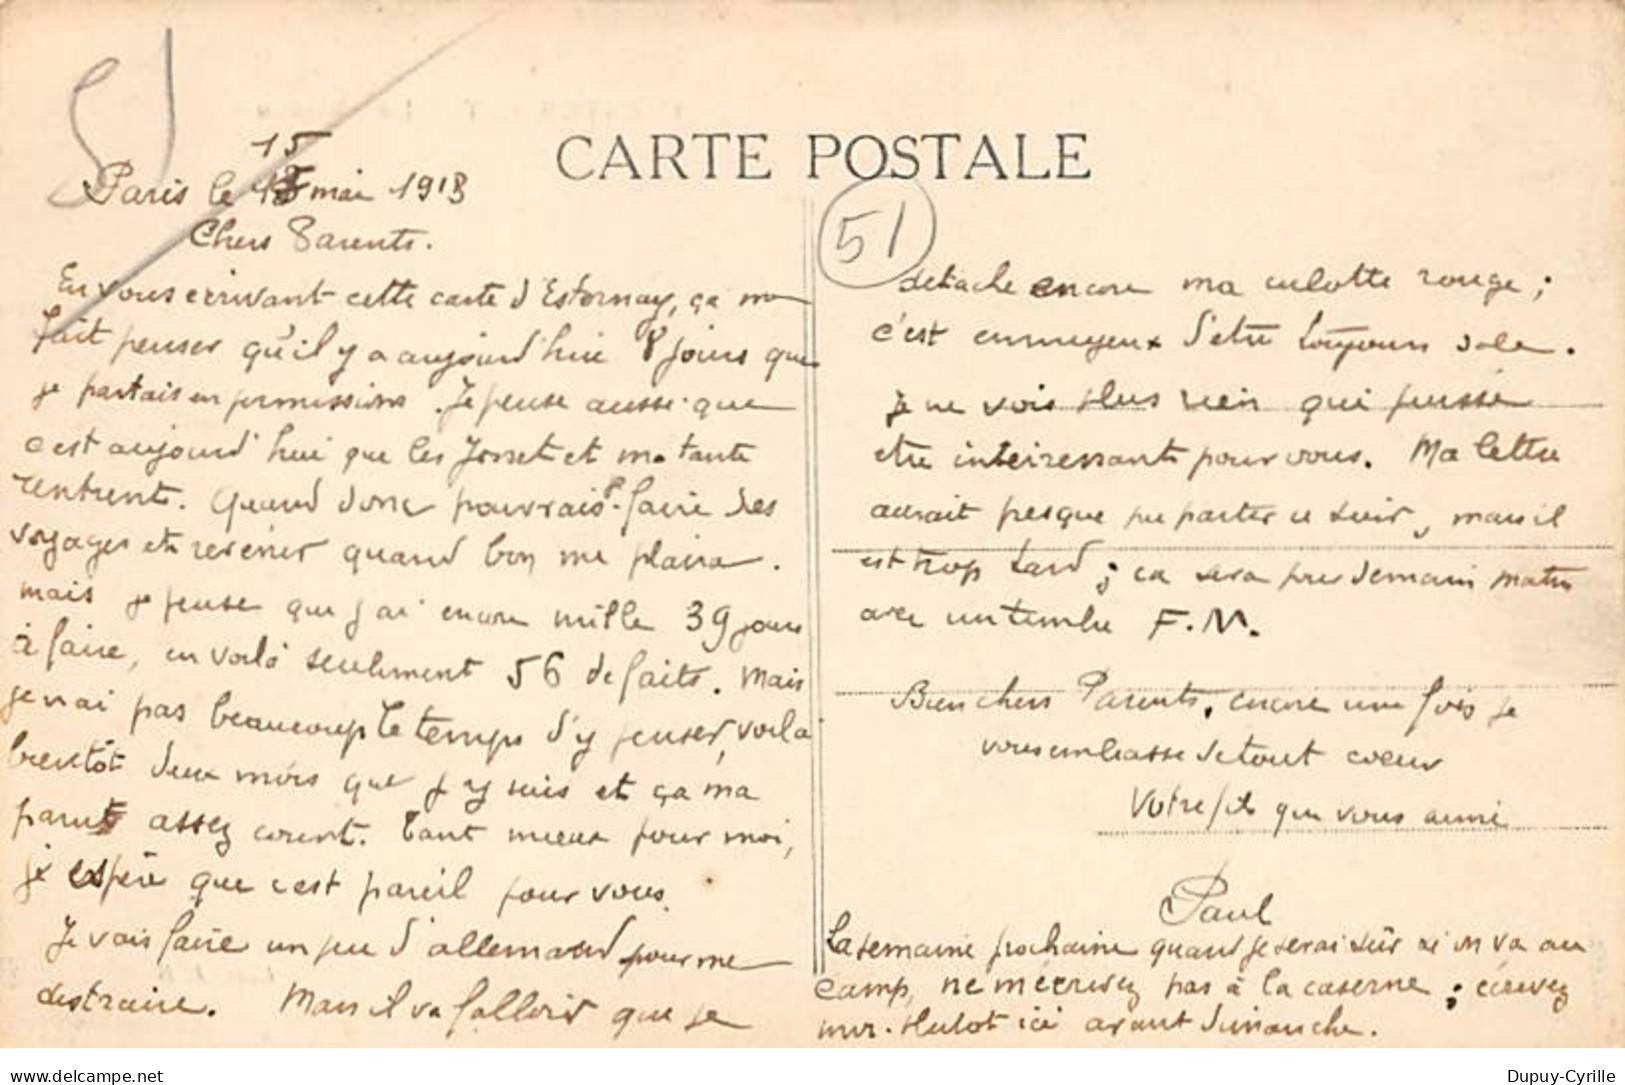 51
CARTE POSTALE
15
Paris le mai 1913
51
Chers Parents.
En vous écrivant cette carte d'Esternay, ça me
fait penser qu'il y a aujourd'hui 8 jours que
je partais en permissions. Je pense aussi que
c'est aujourd'hui que les et ma tante
rentrent. Quand donc pourrais-je faire des
voyages et revenir quand bon me plaira.
mais je pense que j'ai encore mille 39 jours
à faire, en voilà seulement 56 de faits. Mais
je n'ai pas beaucoup le temps d'y penser, voila
bientôt deux mois que j'y suis et ça m'a
parut assez court. Tant mieux pour moi,
j'espère que c'est pareil pour vous.
Je vais faire un peu d'allemand pour me
distraire. Mais il va falloir que je
detache encore ma culotte rouge ;
c'est ennuyeux d'être toujours sale.
je ne vois plus rien qui puisse
etre interressants pour vous. Ma lettre
aurait presque pu partir ce soir, mais il
est trop tard ; ca sera pour demain matin
avec un timbre F.M.
Bien chers Parents, encore une fois je
vous embrasse de tout coeur
Votre fils qui vous aime
Paul
La semaine prochaine quand je serai sûr si on va au
camp, ne m'écrivez pas à la caserne ; écrivez
mr. Hulot ici avant dimanche.
delcampe.net
Dupuy-Cyrille